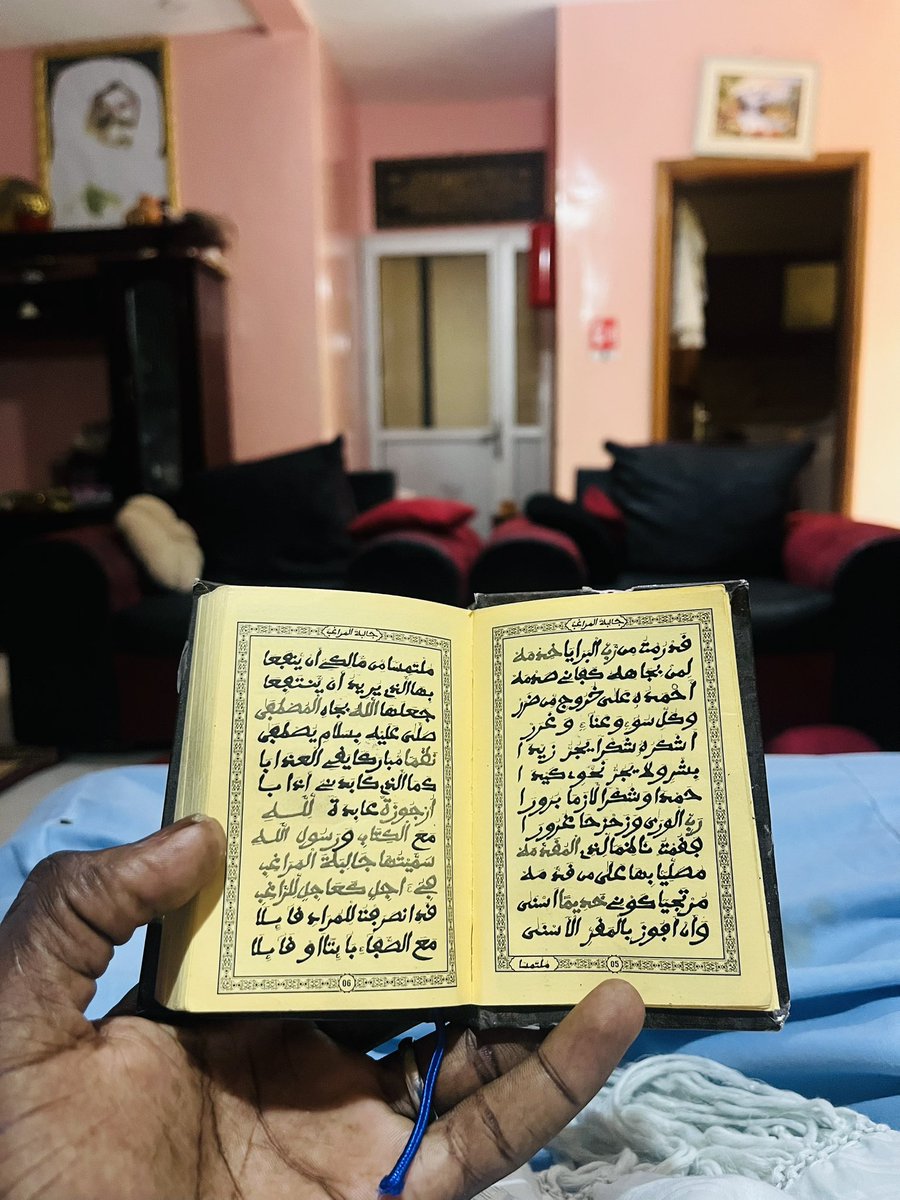 جالبة المراغب
قد رمت من رب البرايا خدمه
لمن بجاهه كفاني صدمه
أحمده على خروج من ضرر
وكل سوء وعناء وغرر
أشكره شكرا يجر زيدا
بشر ولا يجر نحوي كيدا
حمدا وشكرا لازما برورا
رب الورى وزحزحا غرورا
المقدمه
مصليا بها على من قدمه
مرتجيا كوني خديما أسنى
وأن أفوز بالمقر الأسنى
ملتمسا
05
جالبة المراغب
ملتمسا من مالك أن ينفعا
بها الذي يريد أن ينتفعا
جعلها الله بجاه المصطفى
صلى عليه بسلام يصطفى
نفعا مباركا يقي العذابا
كما الذي كابدني أذابا
أرجوزة عابدة لله
مع الكتاب ورسول الله
سميتها جالبة المراغب
في ءاجل كعاجل للراغب
قد انصرفت للمراد قائلا
مع الصفاء بائتا أو قائلا
06